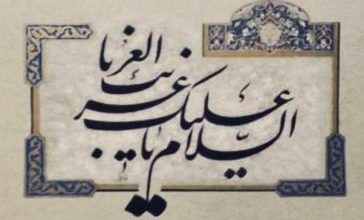 السلام علیک یا غریب الغربا